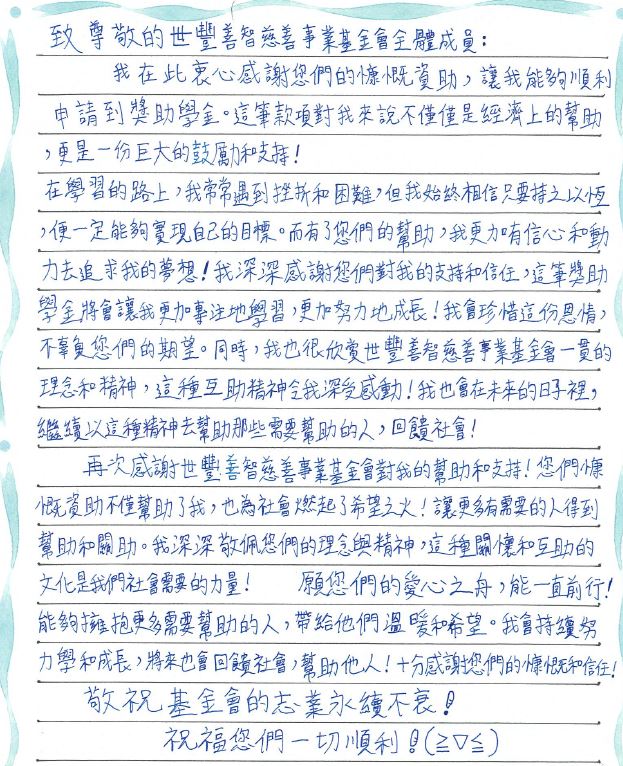 致尊敬的世豐善智慈善事業基金會全體成員:
我在此衷心感謝您們的慷慨資助,讓我能夠順利
申請到獎助學金。這筆款項對我來說不僅僅是經濟上的幫助
,更是一份巨大的鼓勵和支持!
在學習的路上,我常常遇到挫折和困難,但我始終相信只要持之以恆
,便一定能夠實現自己的目標。而有了您們的幫助,我更加有信心和動
力去追求我的夢想!我深深感謝您們對我的支持和信任,這筆獎助
學金將會讓我更加專注地學習,更加努力地成長!我會珍惜這份恩情,
不辜負您們的期望。同時,我也很欣賞世豐善智慈善事業基金會一貫的
理念和精神,這種互助精神令我深受感動!我也會在未來的日子裡,
繼續以這種精神去幫助那些需要幫助的人,回饋社會!
再次感謝世豐善智慈善事業基金會對我的幫助和支持!您們慷
慨資助不僅幫助了我,也為社會燃起了希望之火!讓更多有需要的人得到
幫助和關助。我深深敬佩您們的理念與精神,這種關懷和互助的
文化是我們社會需要的力量! 願您們的愛心之舟,能一直前行!
能夠擁抱更多需要幫助的人,帶給他們溫暖和希望。我會持續努
力學和成長,將來也會回饋社會,幫助他人!十分感謝您們的慷慨和信任!
敬祝基金會的志業永續不衰!
祝福您們一切順利!(≧▽≦)